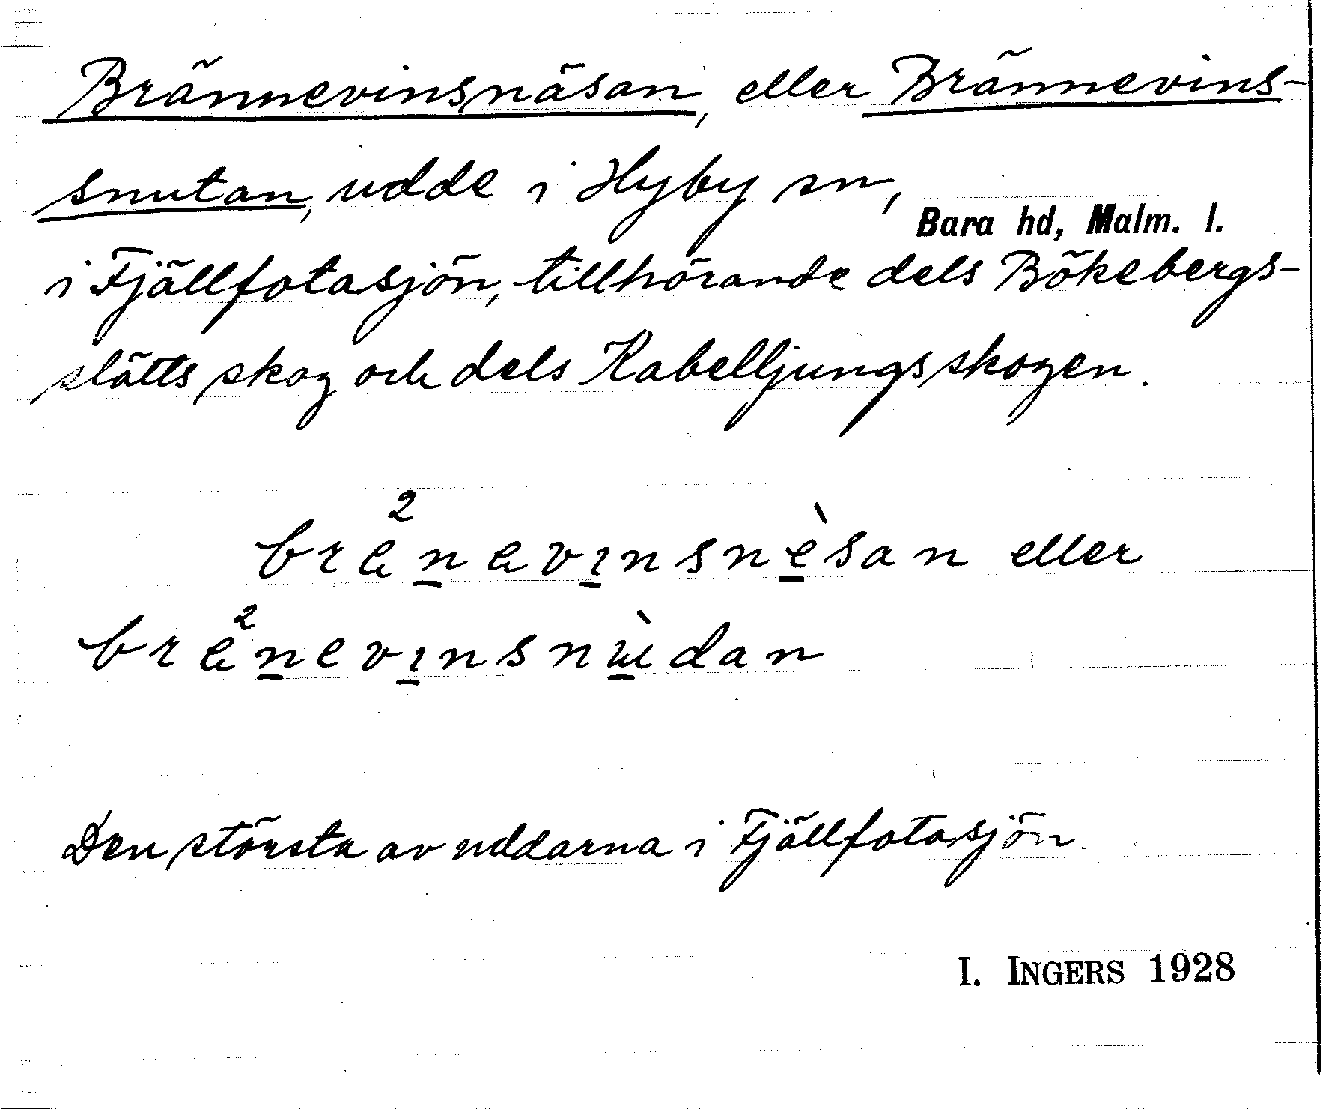 Brännevinsnäsan, eller Brännevins-
snutan, udde i Hyby sn,
Bara hd, Malm. l.
i Fjällfotasjön, tillhörande dels Bökebergs-
slätts skog och dels Kabelljungsskogen.
brä²nevinsnèsan eller
brä²nevinsnùdan
Den största av uddarna i Fjällfotasjön.
I. INGERS 1928